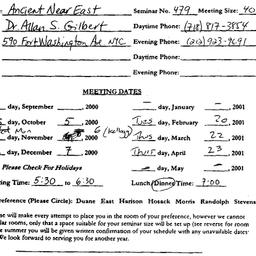 Ancient Near East Seminar No. 479 Meeting Size: 40
Dr Allan S. Gilbert Daytime Phone: (718) 817-3854
590 Fort Washington Ave NYC Evening Phone: (212) 923-9691
Daytime Phone:
Evening Phone:
MEETING DATES
day, September , 2000 — day, January — , 2001
day, October 5 , 2000 Tues day, February 20 , 2001
Mon
day, November 6 , 2000 Thurs day, March 22 , 2001
day, December 7 , 2000 Thur day, April 23 , 2001
Please Check For Holidays — day, May — , 2001
ing Time: 5:30 to 6:30 Lunch/Dinner Time: 7:00
eference (Please Circle): Duane East Harison Hosack Morris Randolph Stevens
se will make every attempt to place you in the room of your preference, however we cannot
lar rooms, only that a space suitable for your seminar size will be set up (see reverse for room
e summer you will be given written confirmation of your schedule with any unavailable dates
We look forward to serving you for another year.